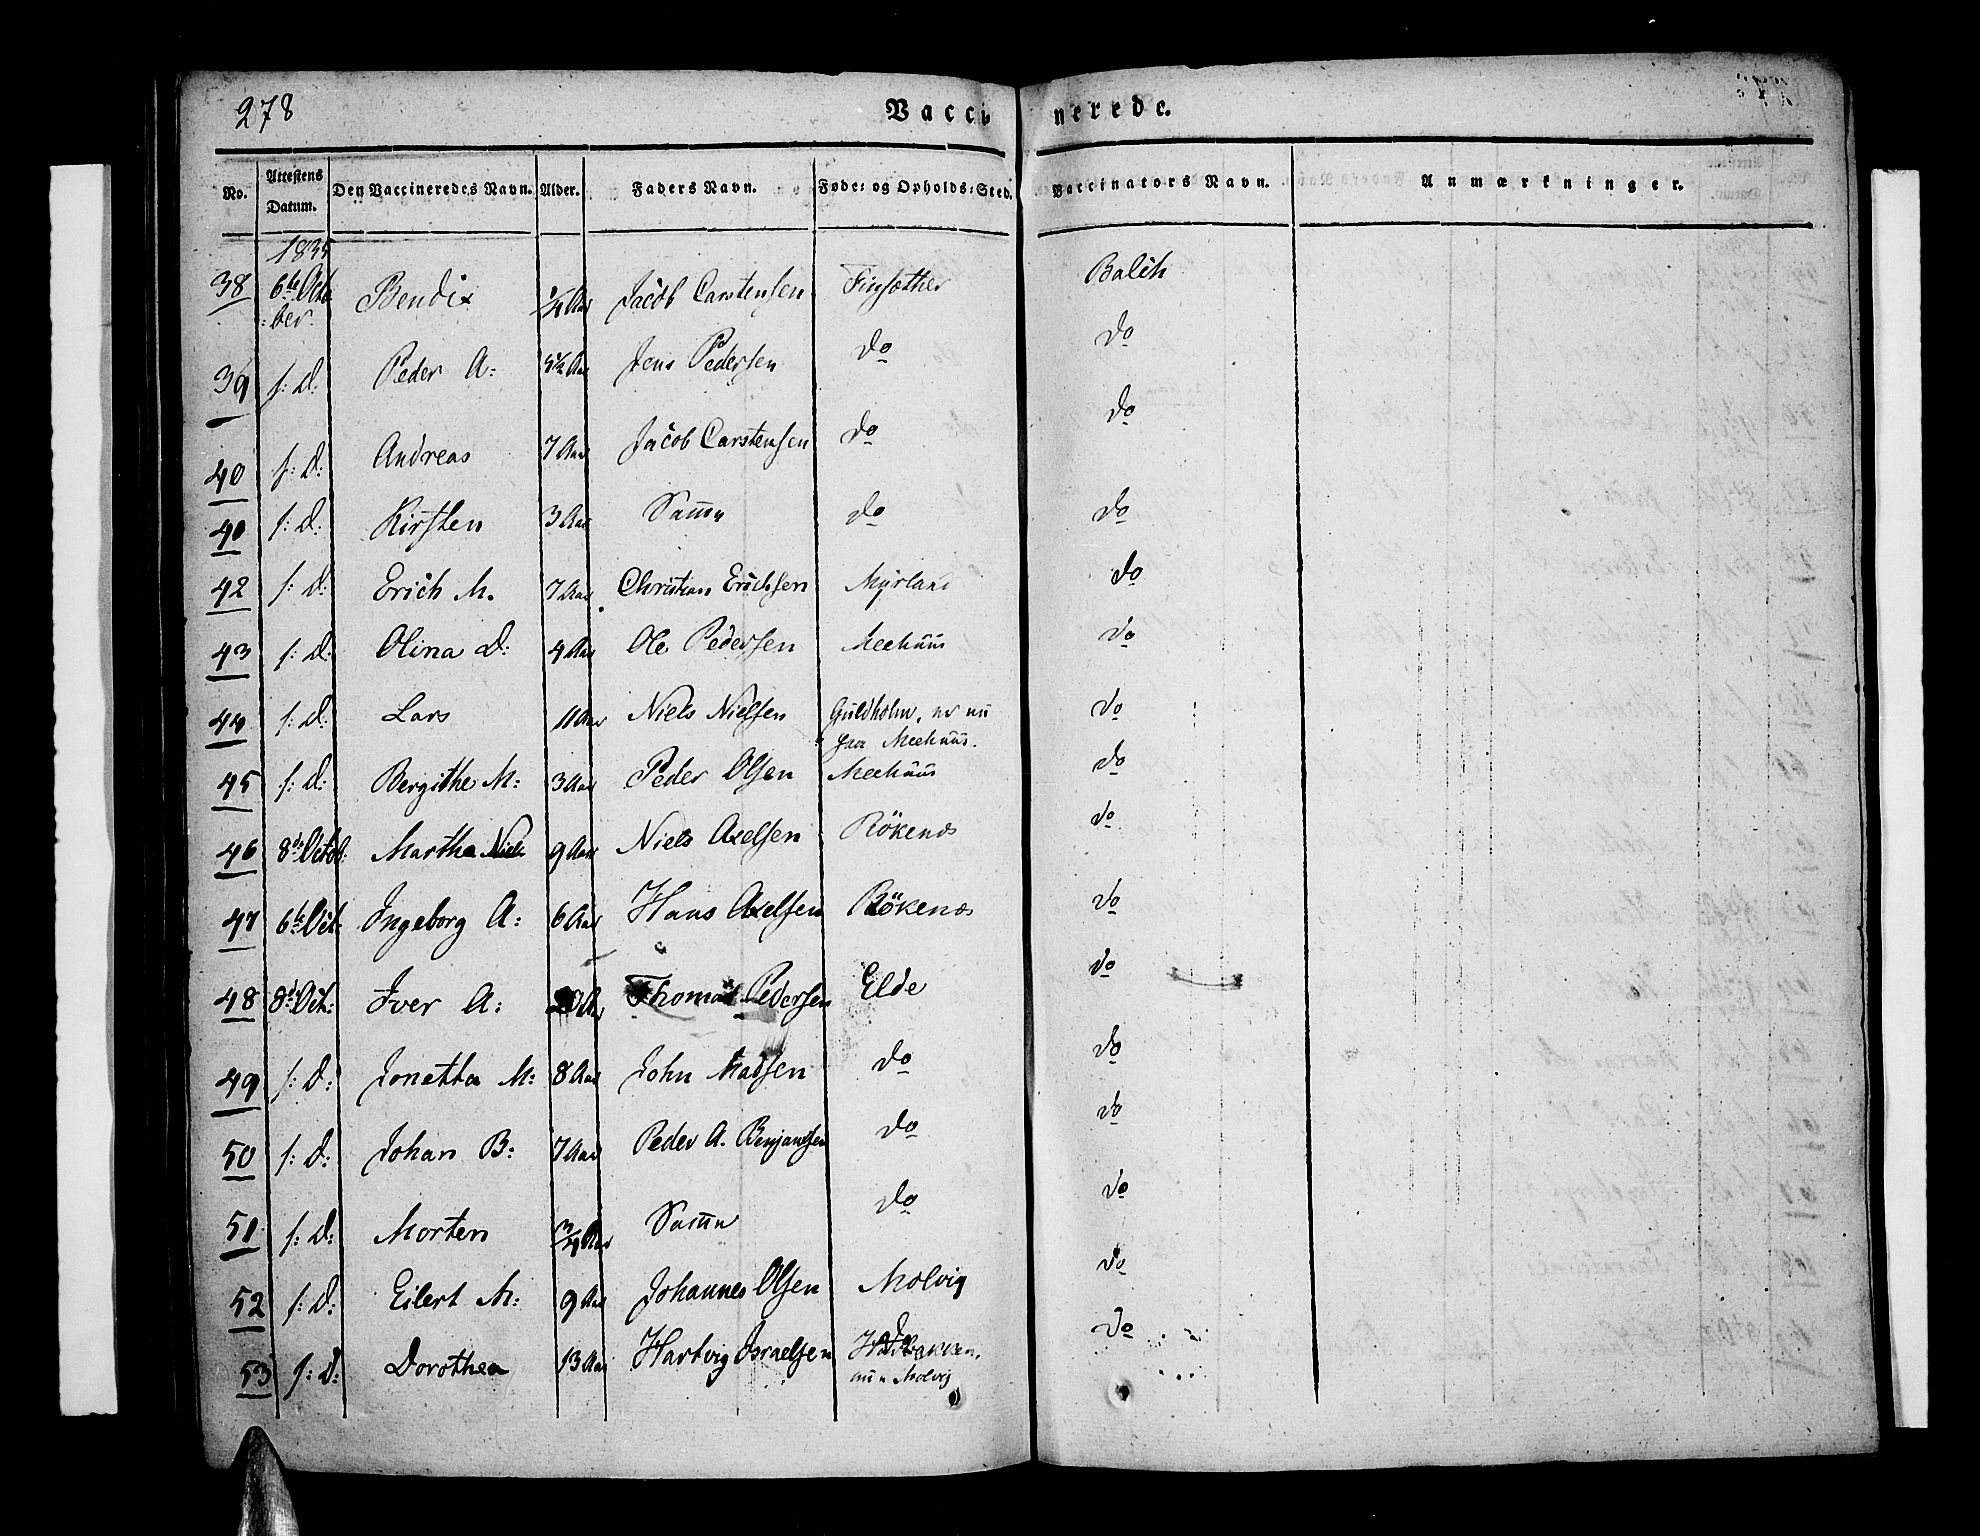 278
Vaccinerede.
No. | Attestens Datum. | Den Vaccineredes Navn. | Alder. | Faders Navn. | Føde: og Opholds: Sted. | Vaccinators Navn. | Anmærkninger.
1835
38 | 6te Octo:ber. | Bendix | 1/4 Aar | Jacob Carstensen | Finsæther | Balch
39 | s: D. | Peder A: | Aar | Jens Pedersen | do | do
40 | s: D: | Andreas | 7 Aar | Jacob Carstensen | do | do
40 | s: D: | Kirsten | 3 Aar | Samme | do | do
42 | s: D: | Erich M. | 7 Aar | Christian Erichsen | Myrland | do
43 | s: D: | Olina D: | 4 Aar | Ole Pedersen | Meehuus | do
44 | s: D: | Lars | 11 Aar | Niels Nielsen | Guldholm, er nu paa Meehuus. | do
45 | s: D: | Bergithe M: | 3 Aar | Peder Olsen | Meehuus | do
46 | 8de Octob: | Martha Niels | 9 Aar | Niels Axelsen | Rökenæs | do
47 | 6te Oct: | Ingeborg A: | 6 Aar | Hans Axelsen | Rökenæs | do
48 | 8de Oct: | Iver A: | Aar | Thomas Pedersen | Elde | do
49 | s: D: | Jonetta M: | 8 Aar | John Madsen | do | do
50 | s: D: | Johan B: | 7 Aar | Peder A. Benjamsen | do | do
51 | s: D: | Morten | 3/4 Aar | Samme | do | do
52 | s: D: | Eilert M: | 9 Aar | Johannes Olsen | Molvig | do
53 | s: D: | Dorothea | 13 Aar | Hartvig Israelsen | nu Molvig | do